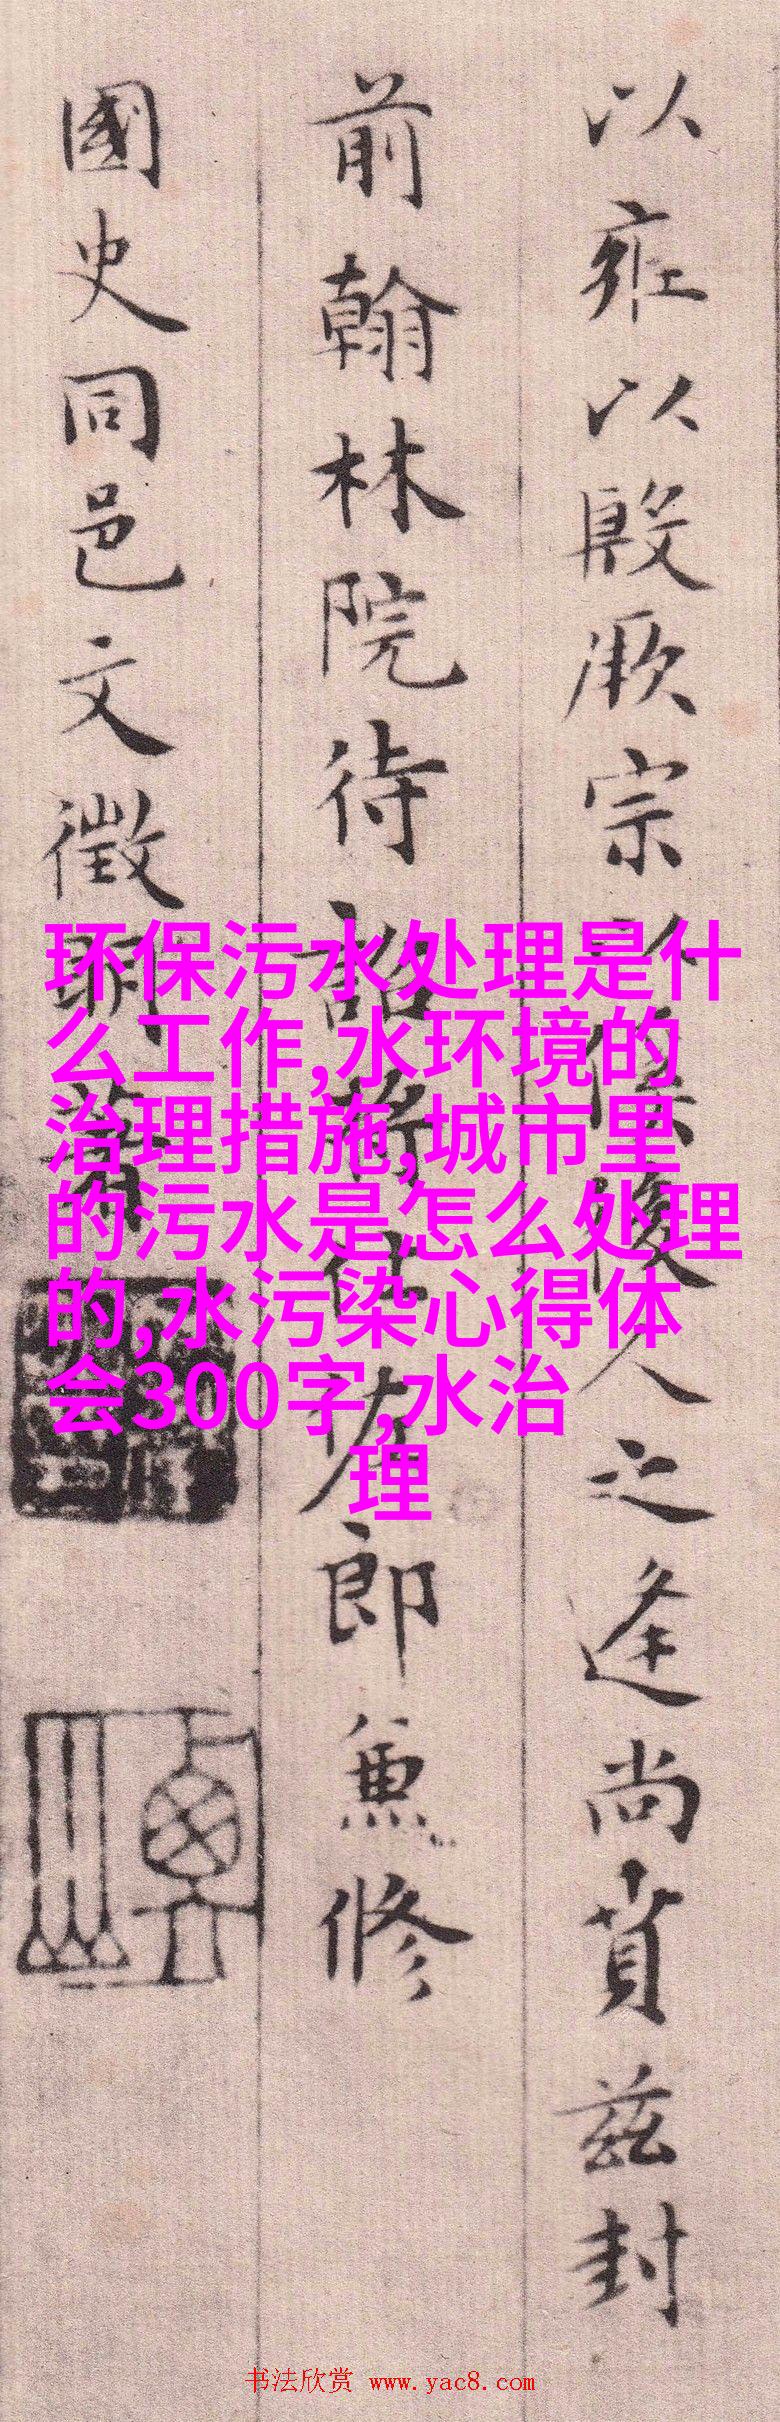 以雍以殷厥宗以俟後人之逢尚賁兹封
前翰林院待詔將仕佐郎兼修
國史同邑文徵明著
环保污水处理是什
么工作,水环境的
治理措施,城市里
的污水是怎么处理
的,水污染心得体
会300字,水治
理
书法欣赏 www.yac8.com